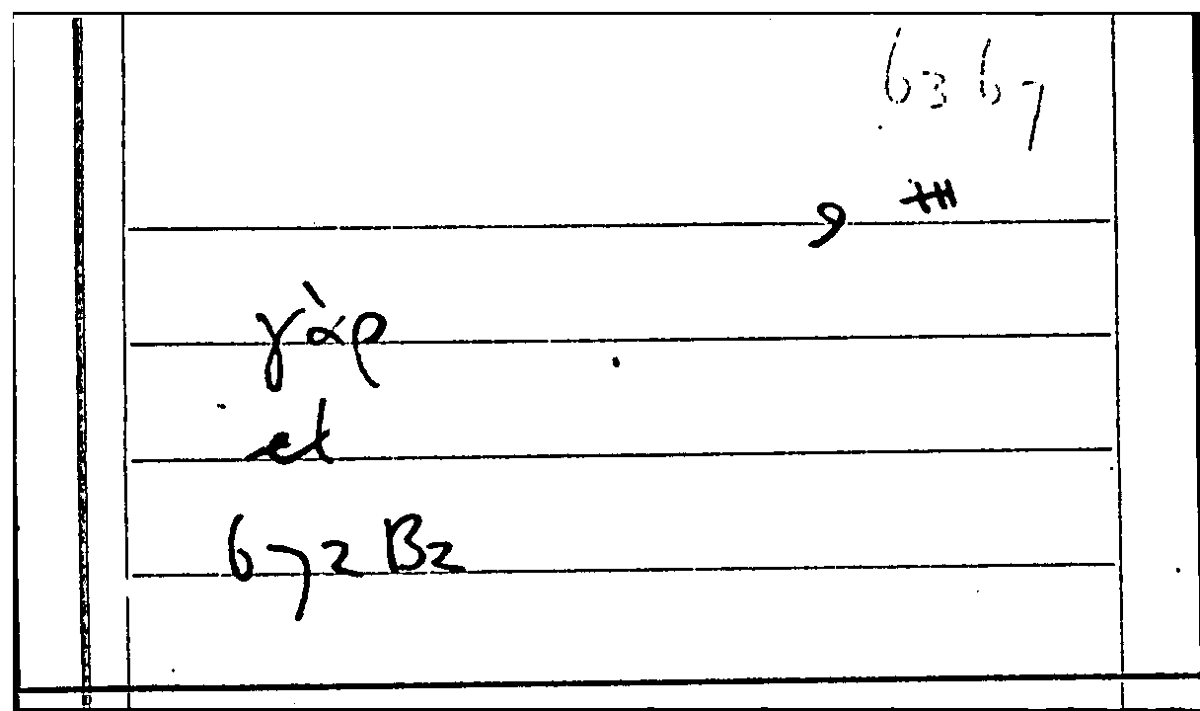 6367
γὰρ
et
672 B2